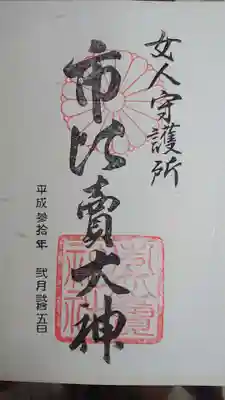 女人守護所
市比賣大神
平成参拾年 弐月拾五日